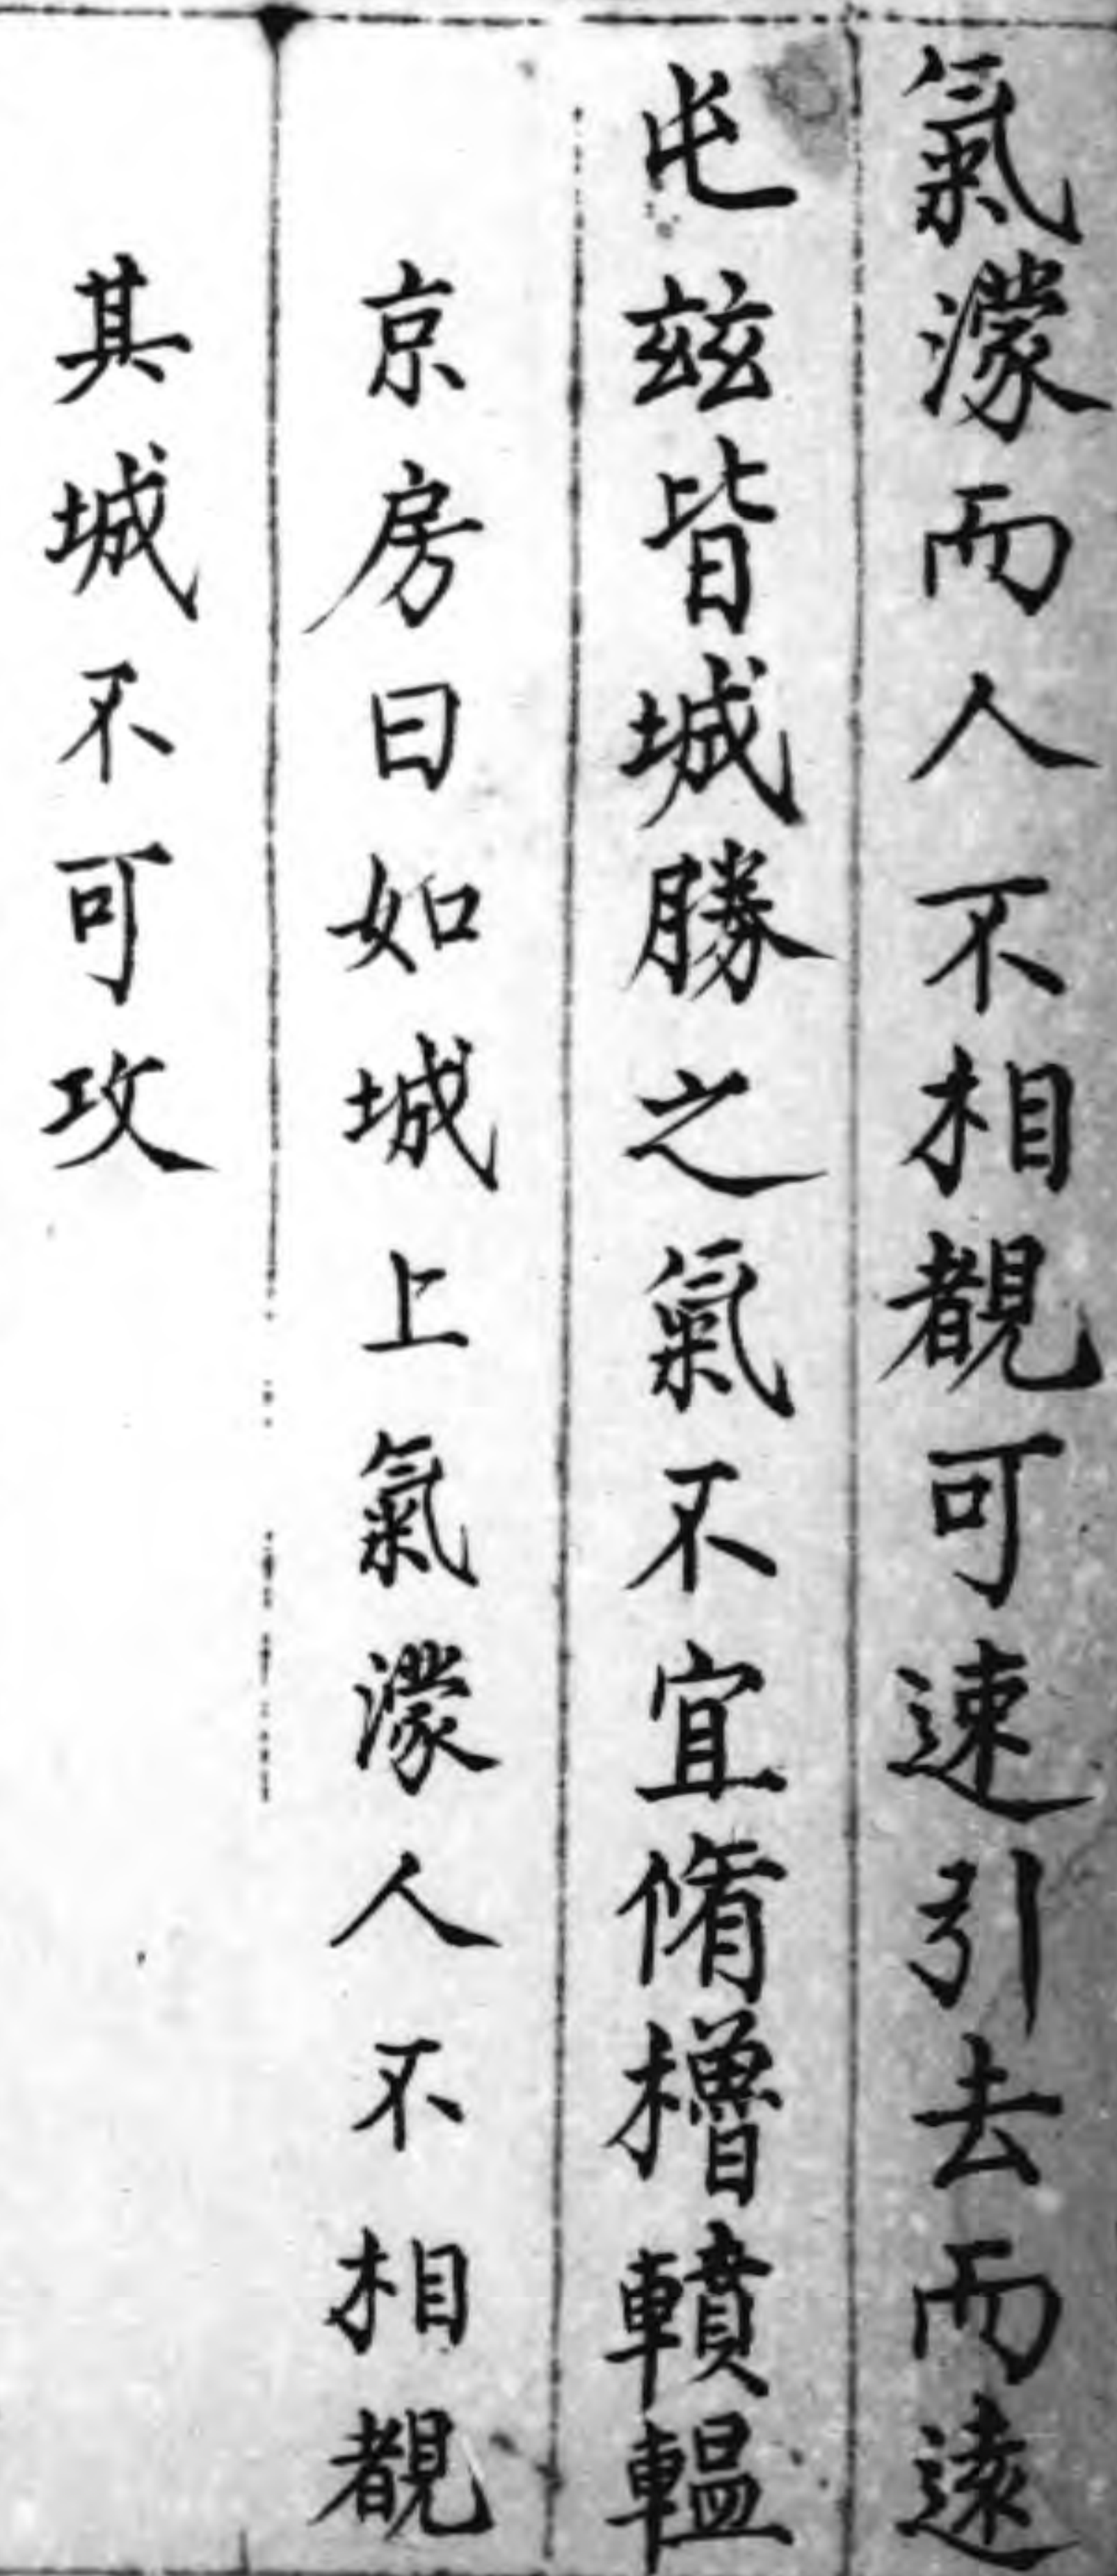 氣濛而人不相覩可速引去而遠
屯兹皆城勝之氣不宜脩櫓轒轀
京房曰如城上氣濛人不相覩
其城不可攻